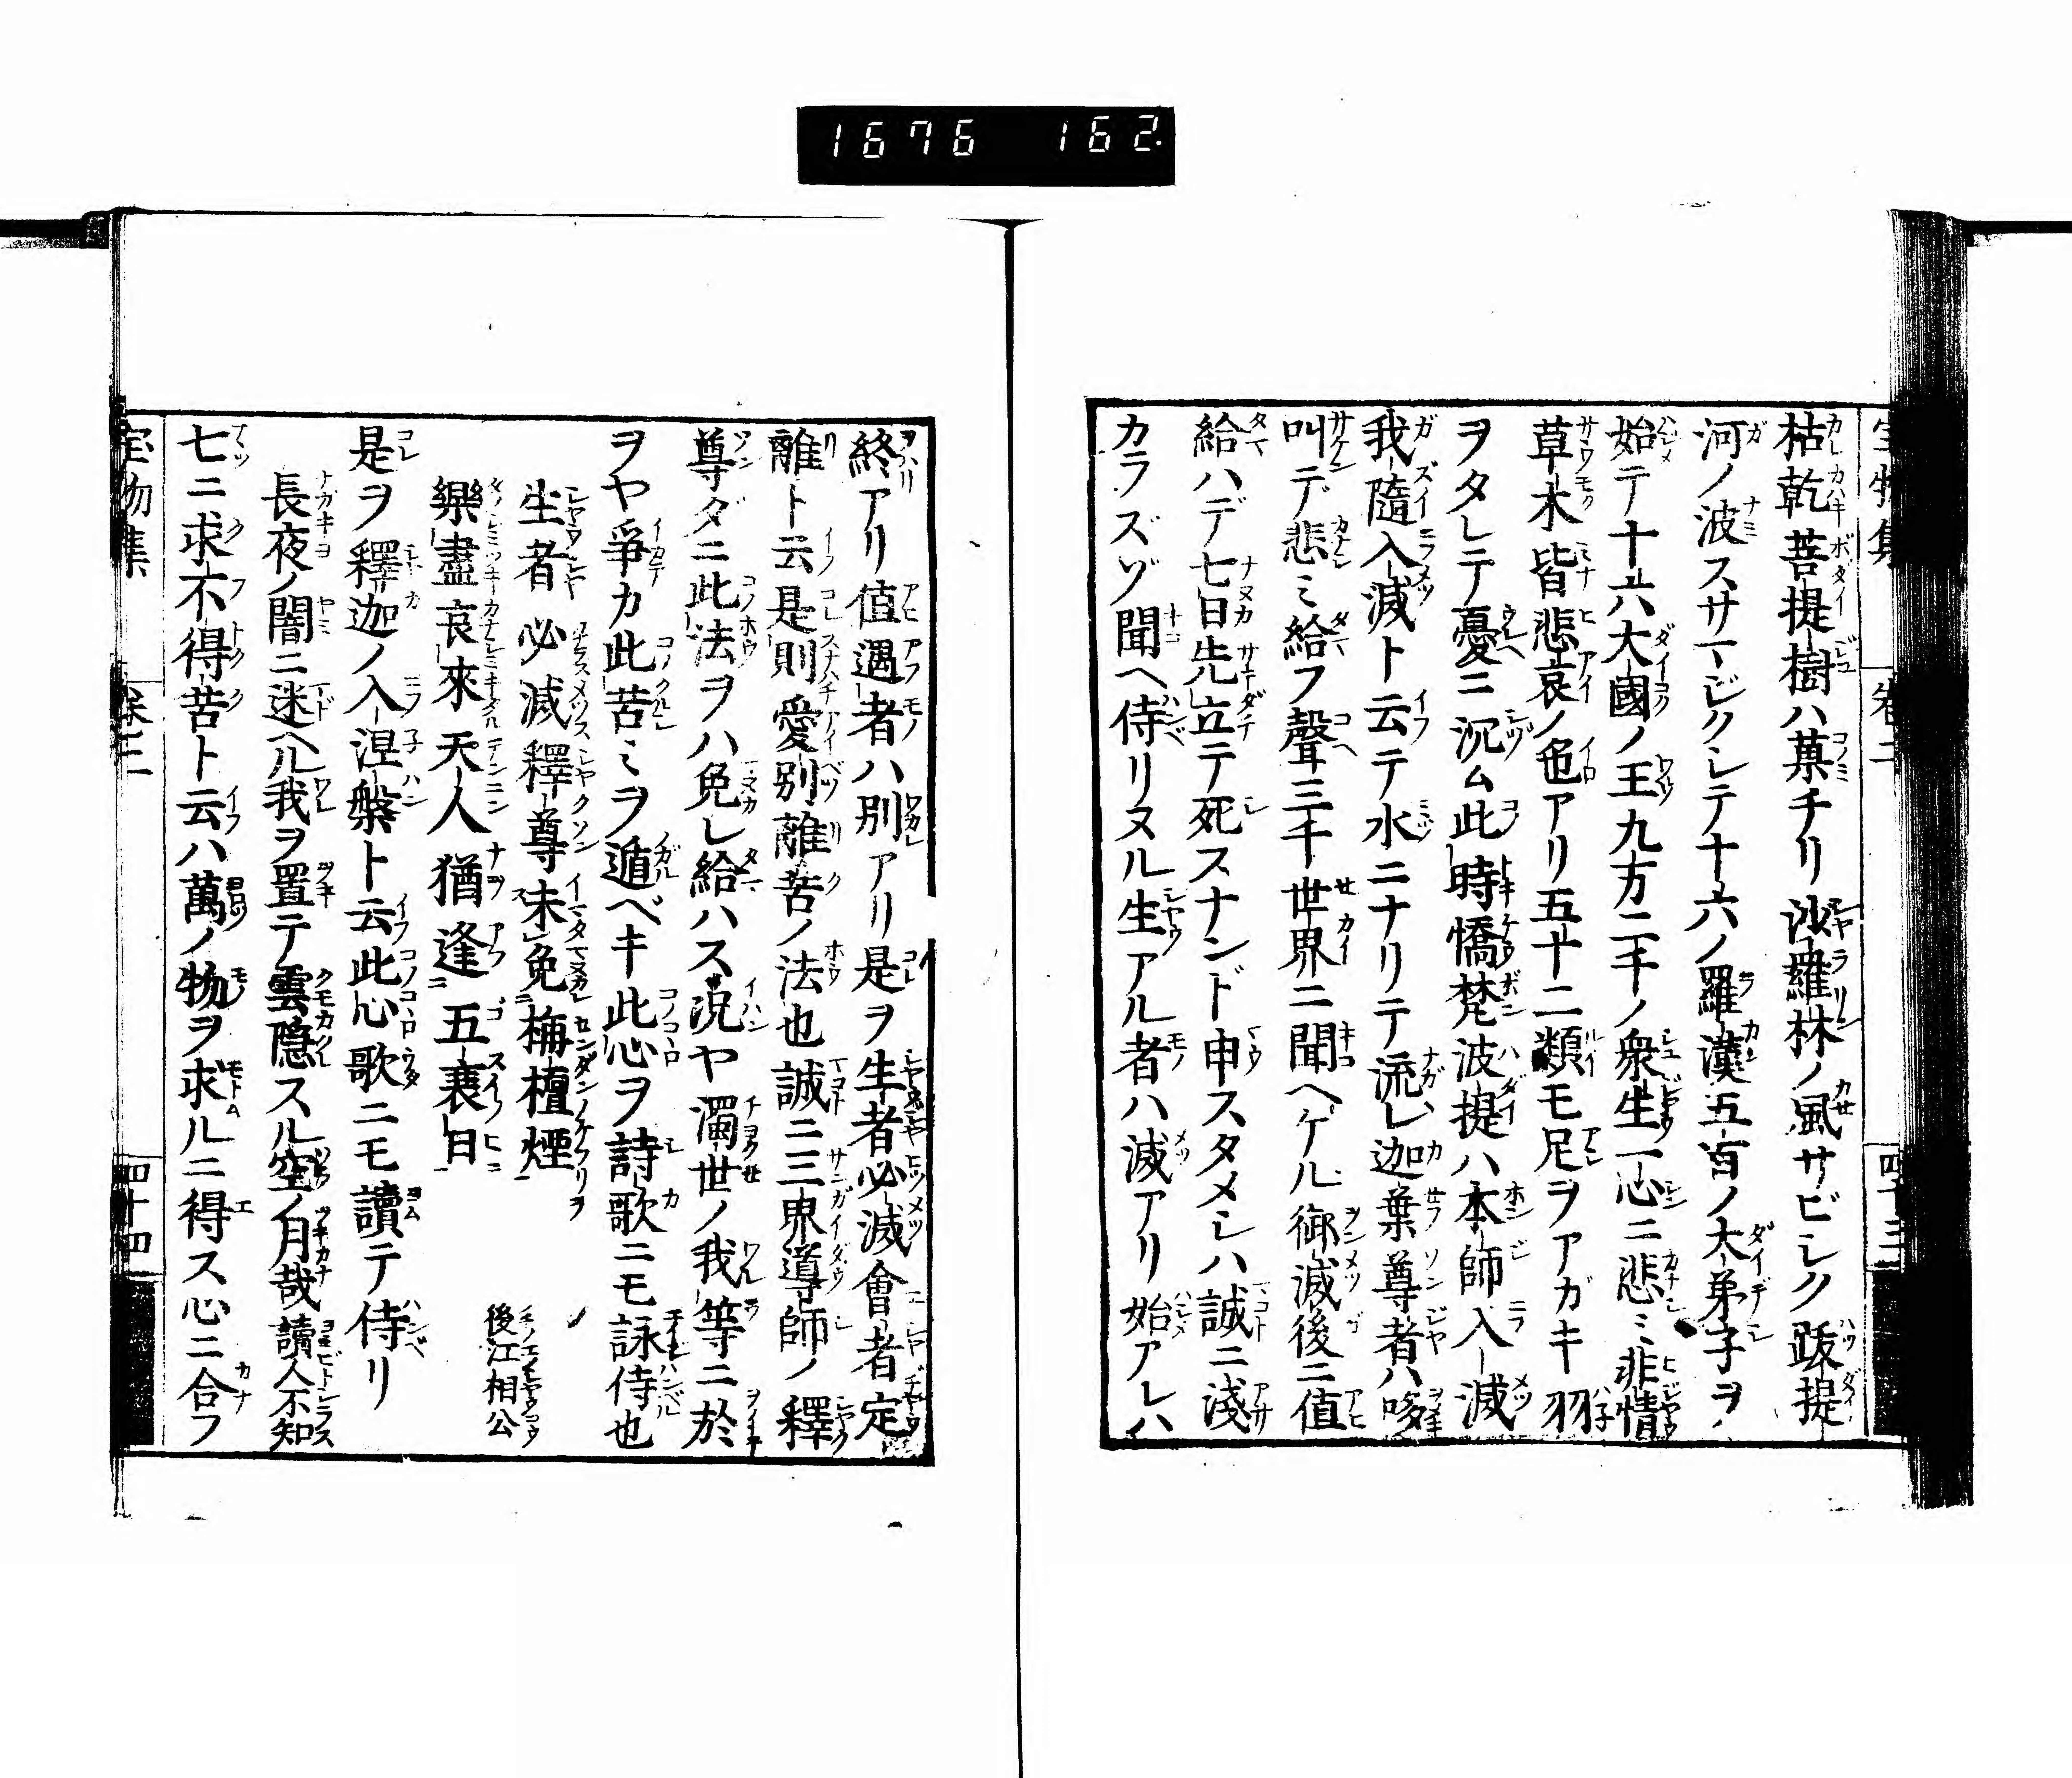 1676 162.
宝物集 卷二 四十三
枯乾菩提樹ハ菓チリ沙羅林ノ風サビシク䟦提
河ノ波スサマジクシテ十六ノ羅漢五百ノ大弟子ヲ
始テ十六大國ノ王九方二千ノ衆生一心ニ悲ミ非情
草木皆悲哀ノ色アリ五十二類モ足ヲアガキ羽
ヲタレテ憂ニ沉ム此時憍梵波提ハ本師入滅
我隨入滅ト云テ水ニナリテ流レ迦葉尊者ハ哆
叫デ悲ミ給フ聲三千世界ニ聞ヘケル御滅後ニ値
給ハデ七日先立テ死スナンド申スタメシハ誠ニ淺
カラズゾ聞ヘ侍リヌル生アル者ハ滅アリ始アレハ
終アリ値遇者ハ別アリ是ヲ生者必滅會者定
離ト云是則愛別離苦ノ法也誠ニ三界導師ノ釋
尊ダニ此法ヲハ免レ給ハス況ヤ濁世ノ我等ニ於
ヲヤ爭カ此苦ミヲ遁ベキ此心ヲ詩歌ニモ詠侍也
生者必滅釋尊未免栴檀煙
樂盡哀來天人猶逢五衰日 後江相公
是ヲ釋迦ノ入涅槃ト云此心歌ニモ讀テ侍リ
長夜ノ闇ニ迷ヘル我ヲ置テ雲隠スル空ノ月哉 讀人不知
七ニ求不得苦ト云ハ萬ノ物ヲ求ルニ得ス心ニ合フ
宝物集 卷二 四十四